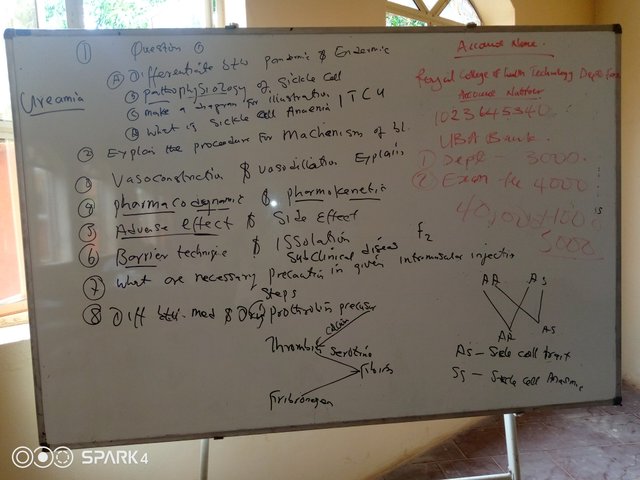 ① Question
Ureamia
Ⓐ Differentiate btw pandemic & Endemic
pathophysiology of Sickle Cell
make a diagram for illustration
What is Sickle Cell Anaemia / TCU
② Explain the procedure for machenism of bl.
③ Vasoconstriction & vasodilation Explain
④ pharmacodynamic & pharmokenetic
⑤ Adverse effect & Side Effect
⑥ Barrier technique & Issolation
Subclinical diseas
⑦ What are necessary precaution in given intramuscular injection
Steps
⑧ Diff btw. med & Drug
prothrobin precusor
Thrombin serotine
Fibrin
Fribronogen
F2
Account Name.
College of Health Technology
Account Number
1023645340
UBA Bank.
① Dept - 3000.
② Exam fee 4000
5000
AA AS
AA AS
AS - Sickle cell trait
SS - Sickle cell Anaemic
SPARK 4